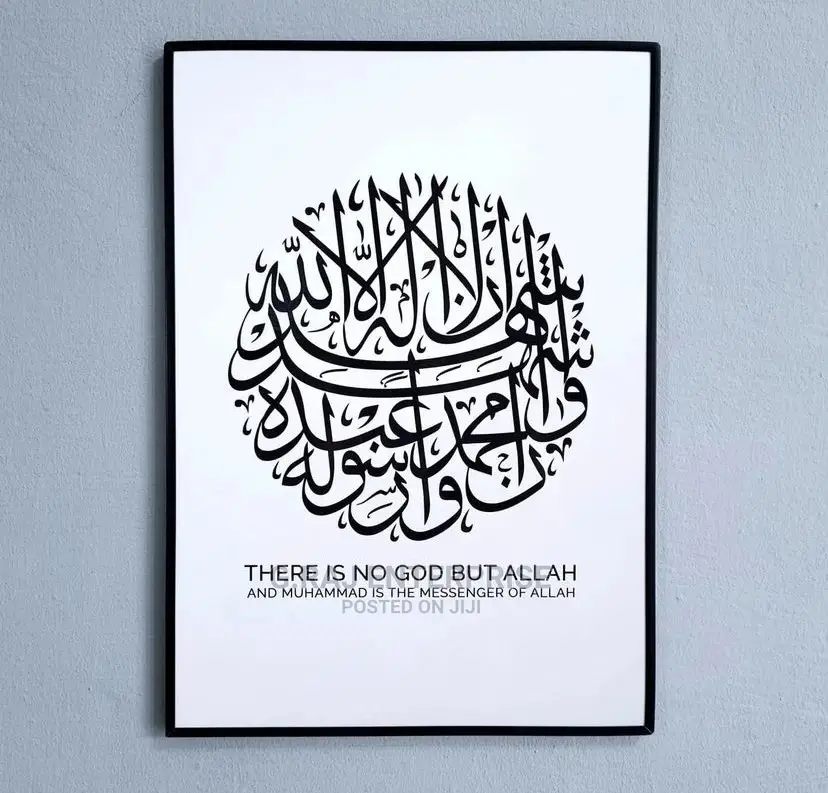 اشهد ان لا اله الا الله
واشهد ان محمدا عبده ورسوله
THERE IS NO GOD BUT ALLAH
ENTERPRISE
AND MUHAMMAD IS THE MESSENGER OF ALLAH
POSTED ON JIJI